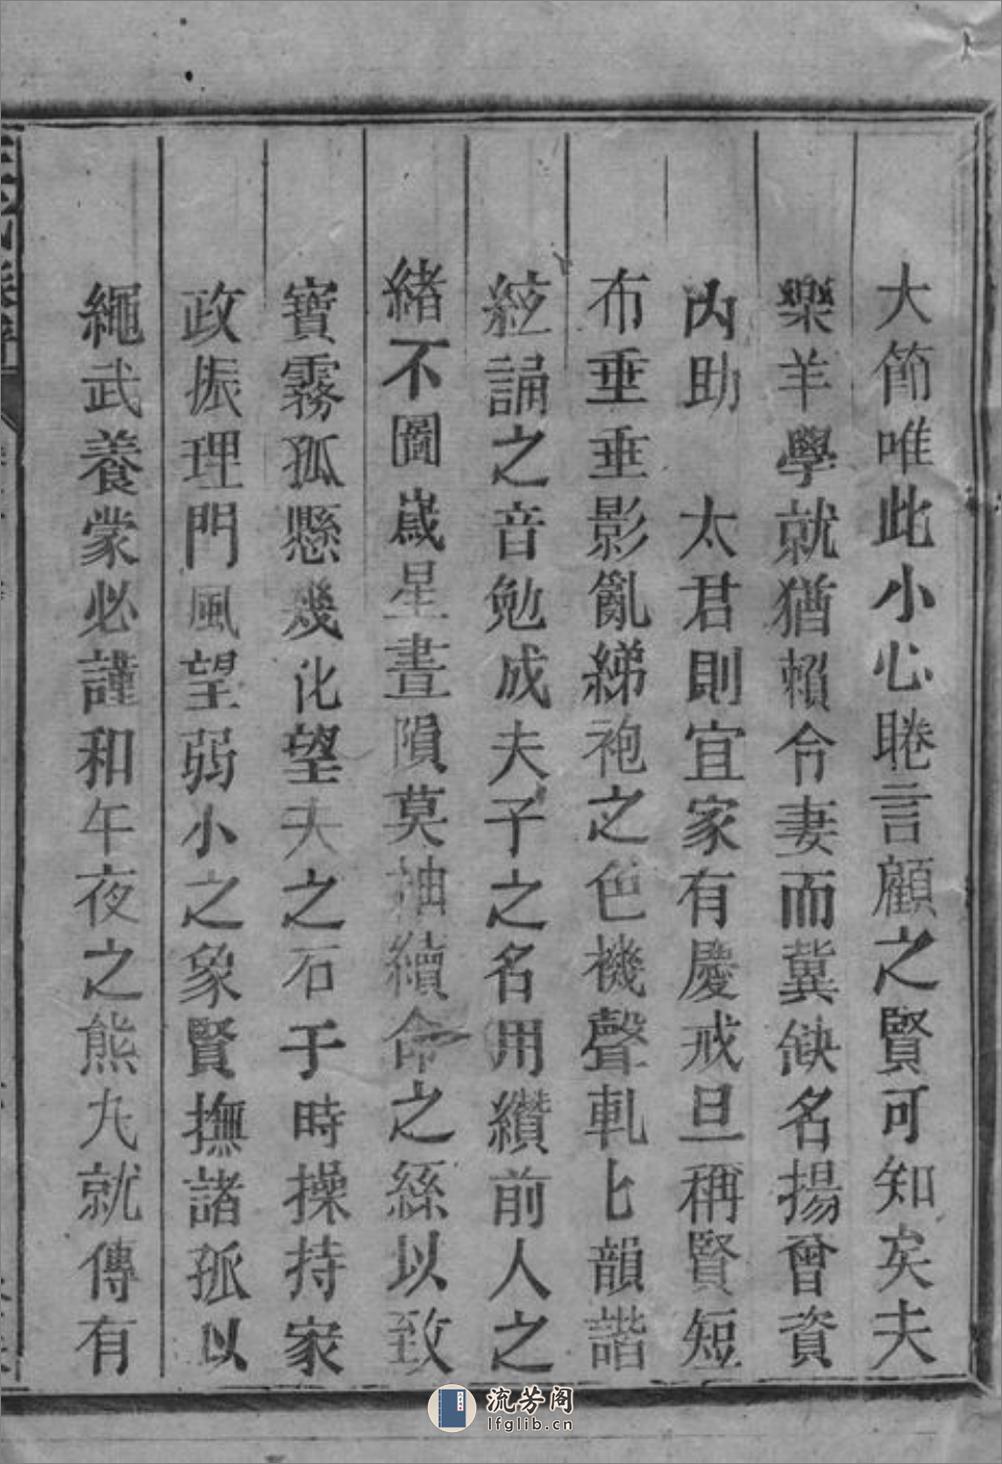 大節唯此小心睠言顧之賢可知矣夫
樂羊學就猶賴令妻而冀缺名揚曾資
內助　太君則宜家有慶戒旦稱賢短
布垂垂影亂綈袍之色機聲軋匕韻諧
絃誦之音勉成夫子之名用纘前人之
緒不圖歲星晝隕莫抽續命之絲以致
寶霧孤懸幾化望夫之石于時操持家
政振理門風望弱小之象賢撫諸孤以
繩武養蒙必謹和午夜之熊丸就傳有
流芳阁
lfglib.cn